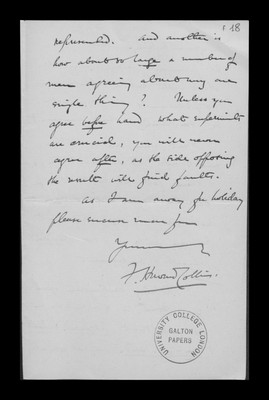 18
represented. And another is
how about so large a number of
men agreeing about any one
single thing? Unless you
agree before hand what experiments
are crucial, you will never
agree after, as the side opposing
the result will find faults.
As I am away for holiday
please excuse more from
Yours
F. Howard Collins.
UNIVERSITY COLLEGE LONDON
GALTON
PAPERS